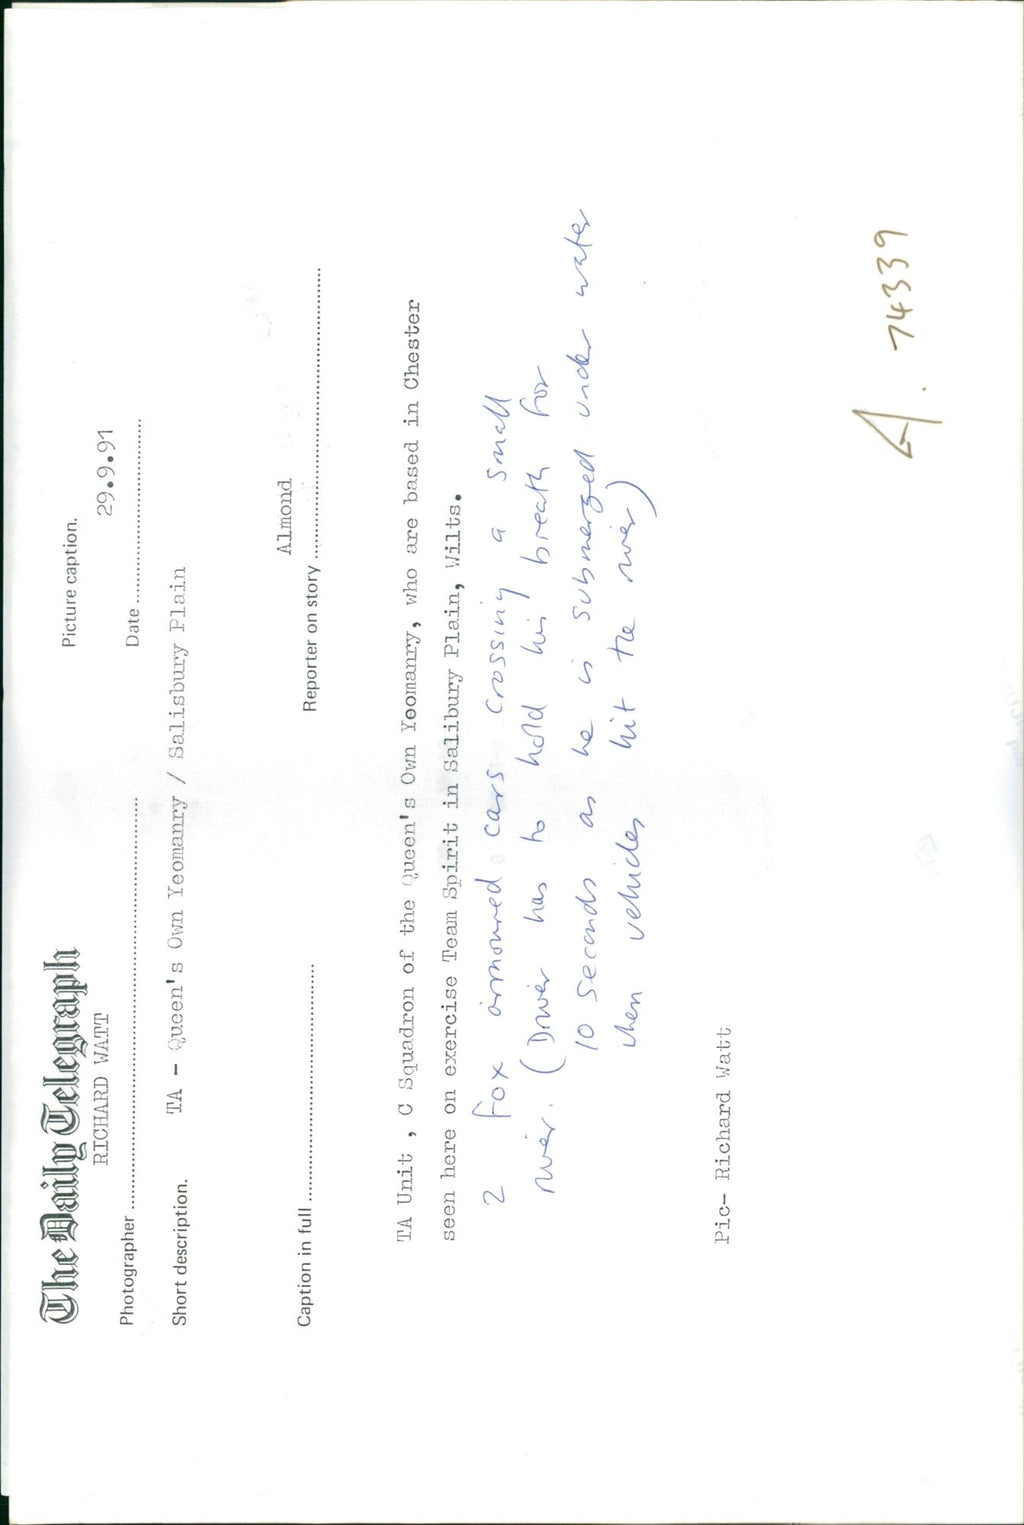 The Daily Telegraph
Picture caption.
RICHARD WATT
29.9.91
Photographer
Date
Short description. TA - Queen's Own Yeomanry / Salisbury Plain
Almond
Caption in full
Reporter on story
TA Unit , C Squadron of the Queen's Own Yeomanry, who are based in Chester
seen here on exercise Team Spirit in Salibury Plain, Wilts.
2 Fox armoured cars crossing a small
river. (Driver has to hold his breath for
10 seconds as he is submerged under water
when vehicles hit the river)
Pic- Richard Watt
A. 74339